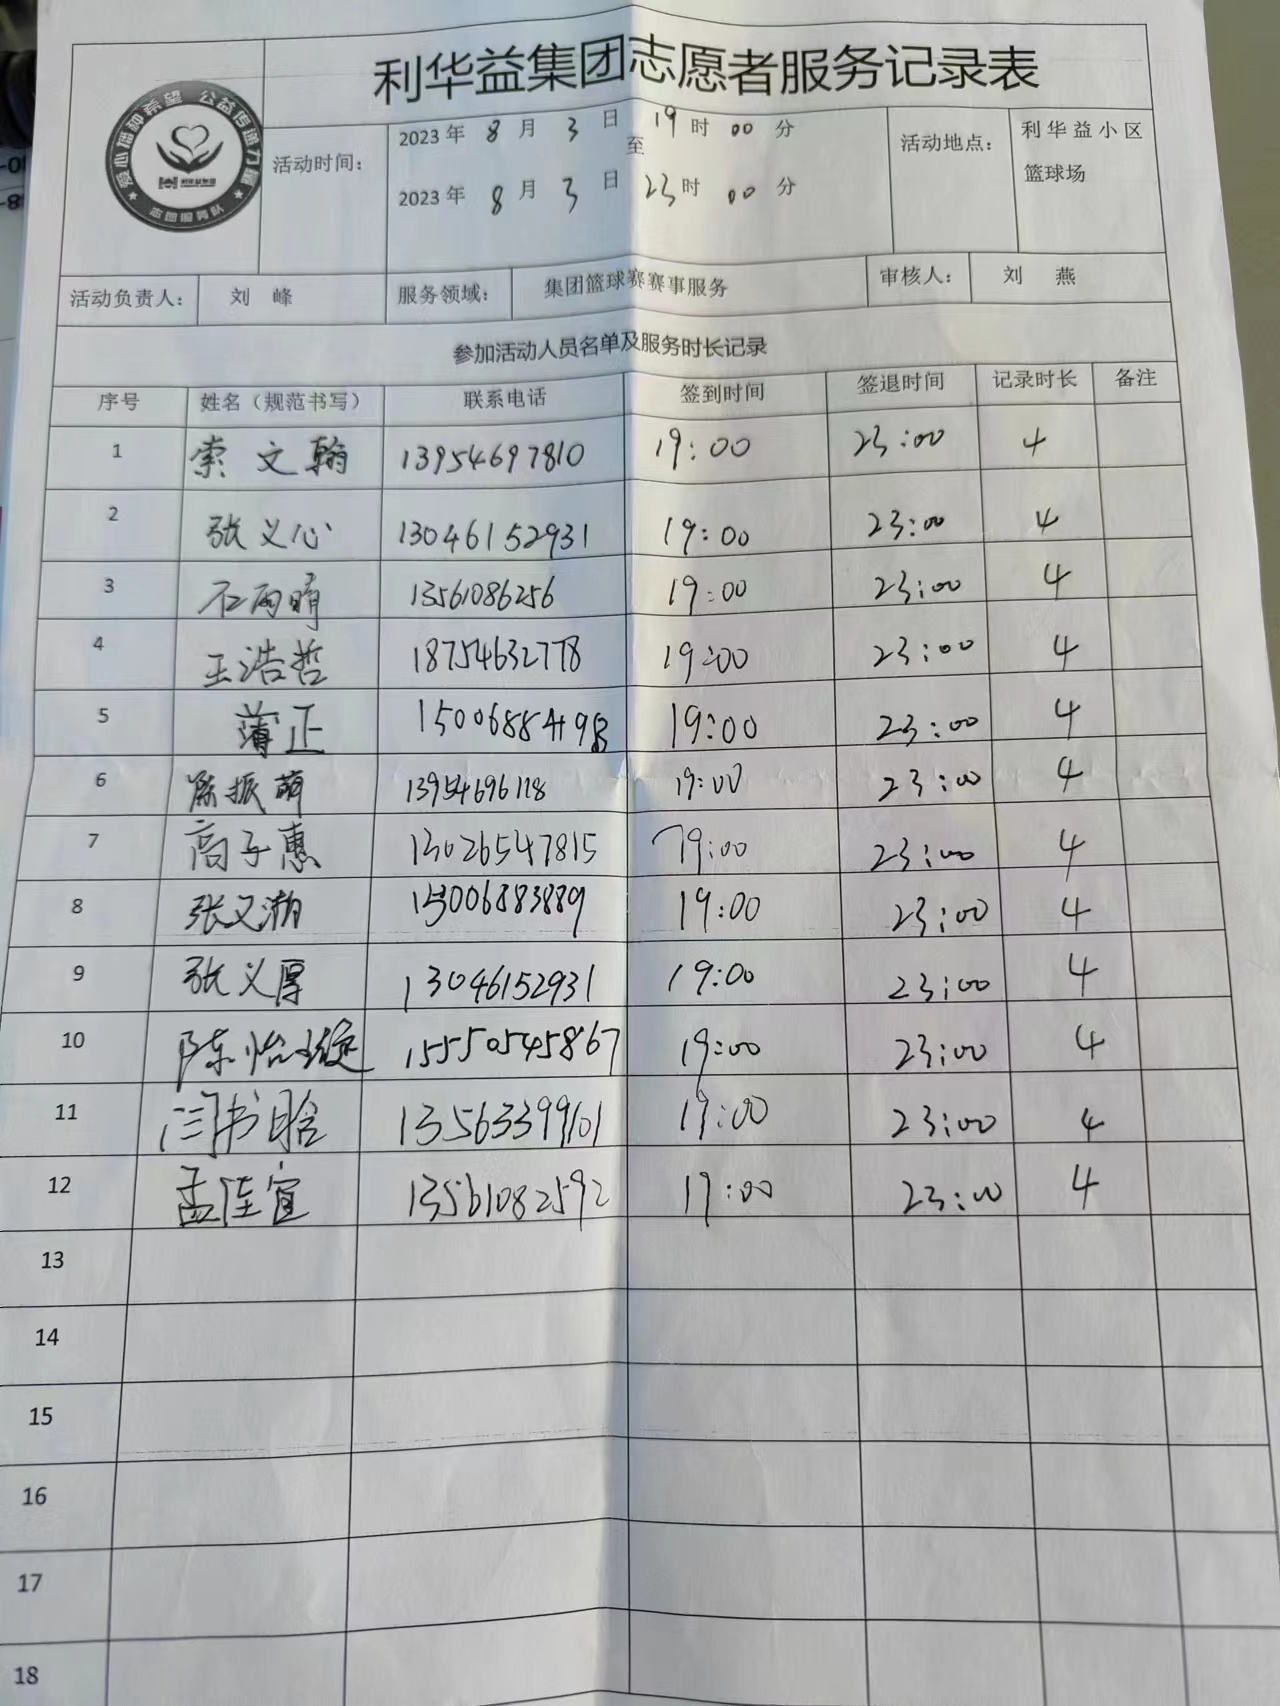 利华益集团志愿者服务记录表
爱心播种希望 公益传递力量
志愿服务队
活动时间：
2023 年 8 月 3 日 19 时 00 分
至
2023 年 8 月 3 日 23 时 00 分
活动地点：
利华益小区
篮球场
活动负责人： 刘 峰 服务领域： 集团篮球赛赛事服务 审核人： 刘 燕
参加活动人员名单及服务时长记录
序号 姓名（规范书写） 联系电话 签到时间 签退时间 记录时长 备注
1 索文翰 13954697810 19:00 23:00 4
2 张义心 13046152931 19:00 23:00 4
3 石雨晴 13561086256 19:00 23:00 4
4 王浩哲 18754632778 19:00 23:00 4
5 薄正 15006884498 19:00 23:00 4
6 陈振萌 13954696118 19:00 23:00 4
7 高子惠 13026547815 19:00 23:00 4
8 张又瀚 15006883889 19:00 23:00 4
9 张义厚 13046152931 19:00 23:00 4
10 陈怡璇 15550545867 19:00 23:00 4
11 闫书晗 13563399101 19:00 23:00 4
12 孟佳宜 13561082592 19:00 23:00 4
13
14
15
16
17
18